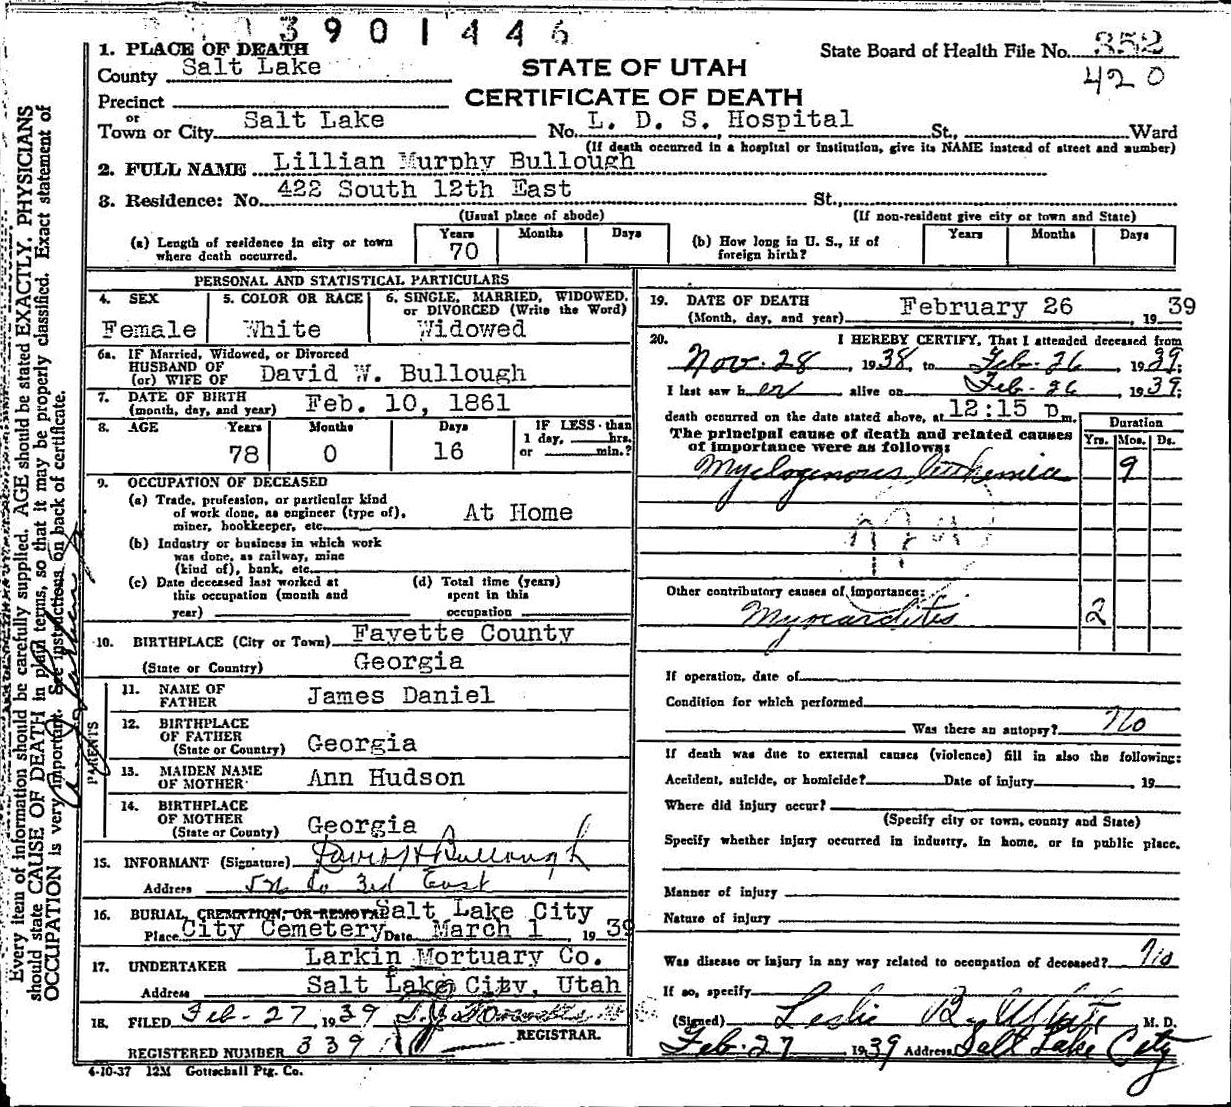 3901446
1. PLACE OF DEATH
State Board of Health File No. 352
County Salt Lake
STATE OF UTAH
420
Precinct
CERTIFICATE OF DEATH
or
Town or City Salt Lake No. L. D. S. Hospital St., Ward
(If death occurred in a hospital or institution, give its NAME instead of street and number)
2. FULL NAME Lillian Murphy Bullough
3. Residence: No. 422 South 12th East St.,
(Usual place of abode) (If non-resident give city or town and State)
(a) Length of residence in city or town where death occurred. Years 70 Months Days
(b) How long in U. S., if of foreign birth? Years Months Days
PERSONAL AND STATISTICAL PARTICULARS
4. SEX Female
5. COLOR OR RACE White
6. SINGLE, MARRIED, WIDOWED, or DIVORCED (Write the Word) Widowed
6a. IF Married, Widowed, or Divorced
HUSBAND OF
(or) WIFE OF David W. Bullough
7. DATE OF BIRTH
(month, day, and year) Feb. 10, 1861
8. AGE Years Months Days IF LESS than
1 day, hrs.
78 0 16 or min.?
9. OCCUPATION OF DECEASED
(a) Trade, profession, or particular kind
of work done, as engineer (type of), At Home
miner, bookkeeper, etc.
(b) Industry or business in which work
was done, as railway, mine
(kind of), bank, etc.
(c) Date deceased last worked at
this occupation (month and
year)
(d) Total time (years)
spent in this
occupation
10. BIRTHPLACE (City or Town) Fayette County
(State or Country) Georgia
PARENTS
11. NAME OF
FATHER James Daniel
12. BIRTHPLACE
OF FATHER
(State or Country) Georgia
13. MAIDEN NAME
OF MOTHER Ann Hudson
14. BIRTHPLACE
OF MOTHER
(State or County) Georgia
15. INFORMANT (Signature) David H Bullough
Address So 3rd East
16. BURIAL, CREMATION, OR REMOVAL Salt Lake City
Place City Cemetery Date March 1 1939
17. UNDERTAKER Larkin Mortuary Co.
Address Salt Lake City, Utah
18. FILED Feb-27, 1939
REGISTRAR.
REGISTERED NUMBER 339
4-10-37 12M Gottschall Ptg. Co.
19. DATE OF DEATH
(Month, day, and year) February 26, 1939
20. I HEREBY CERTIFY, That I attended deceased from
Nov-28, 1938, to Feb-26, 1939;
I last saw her alive on Feb-26, 1939;
death occurred on the date stated above, at 12:15 p m.
The principal cause of death and related causes
of importance were as follows:
Duration
Yrs. Mos. Ds.
Myelogenous leukemia 9
Other contributory causes of importance:
Myocarditis 2
If operation, date of
Condition for which performed
Was there an autopsy? No
If death was due to external causes (violence) fill in also the following:
Accident, suicide, or homicide? Date of injury 19
Where did injury occur?
(Specify city or town, county and State)
Specify whether injury occurred in industry, in home, or in public place.
Manner of injury
Nature of injury
Was disease or injury in any way related to occupation of deceased? No
If so, specify
(Signed) Leslie B. White M. D.
Feb-27 1939 Address Salt Lake City
Every item of information should be carefully supplied. AGE should be stated EXACTLY. PHYSICIANS
should state CAUSE OF DEATH in plain terms, so that it may be properly classified. Exact statement of
OCCUPATION is very important. See instructions on back of certificate.